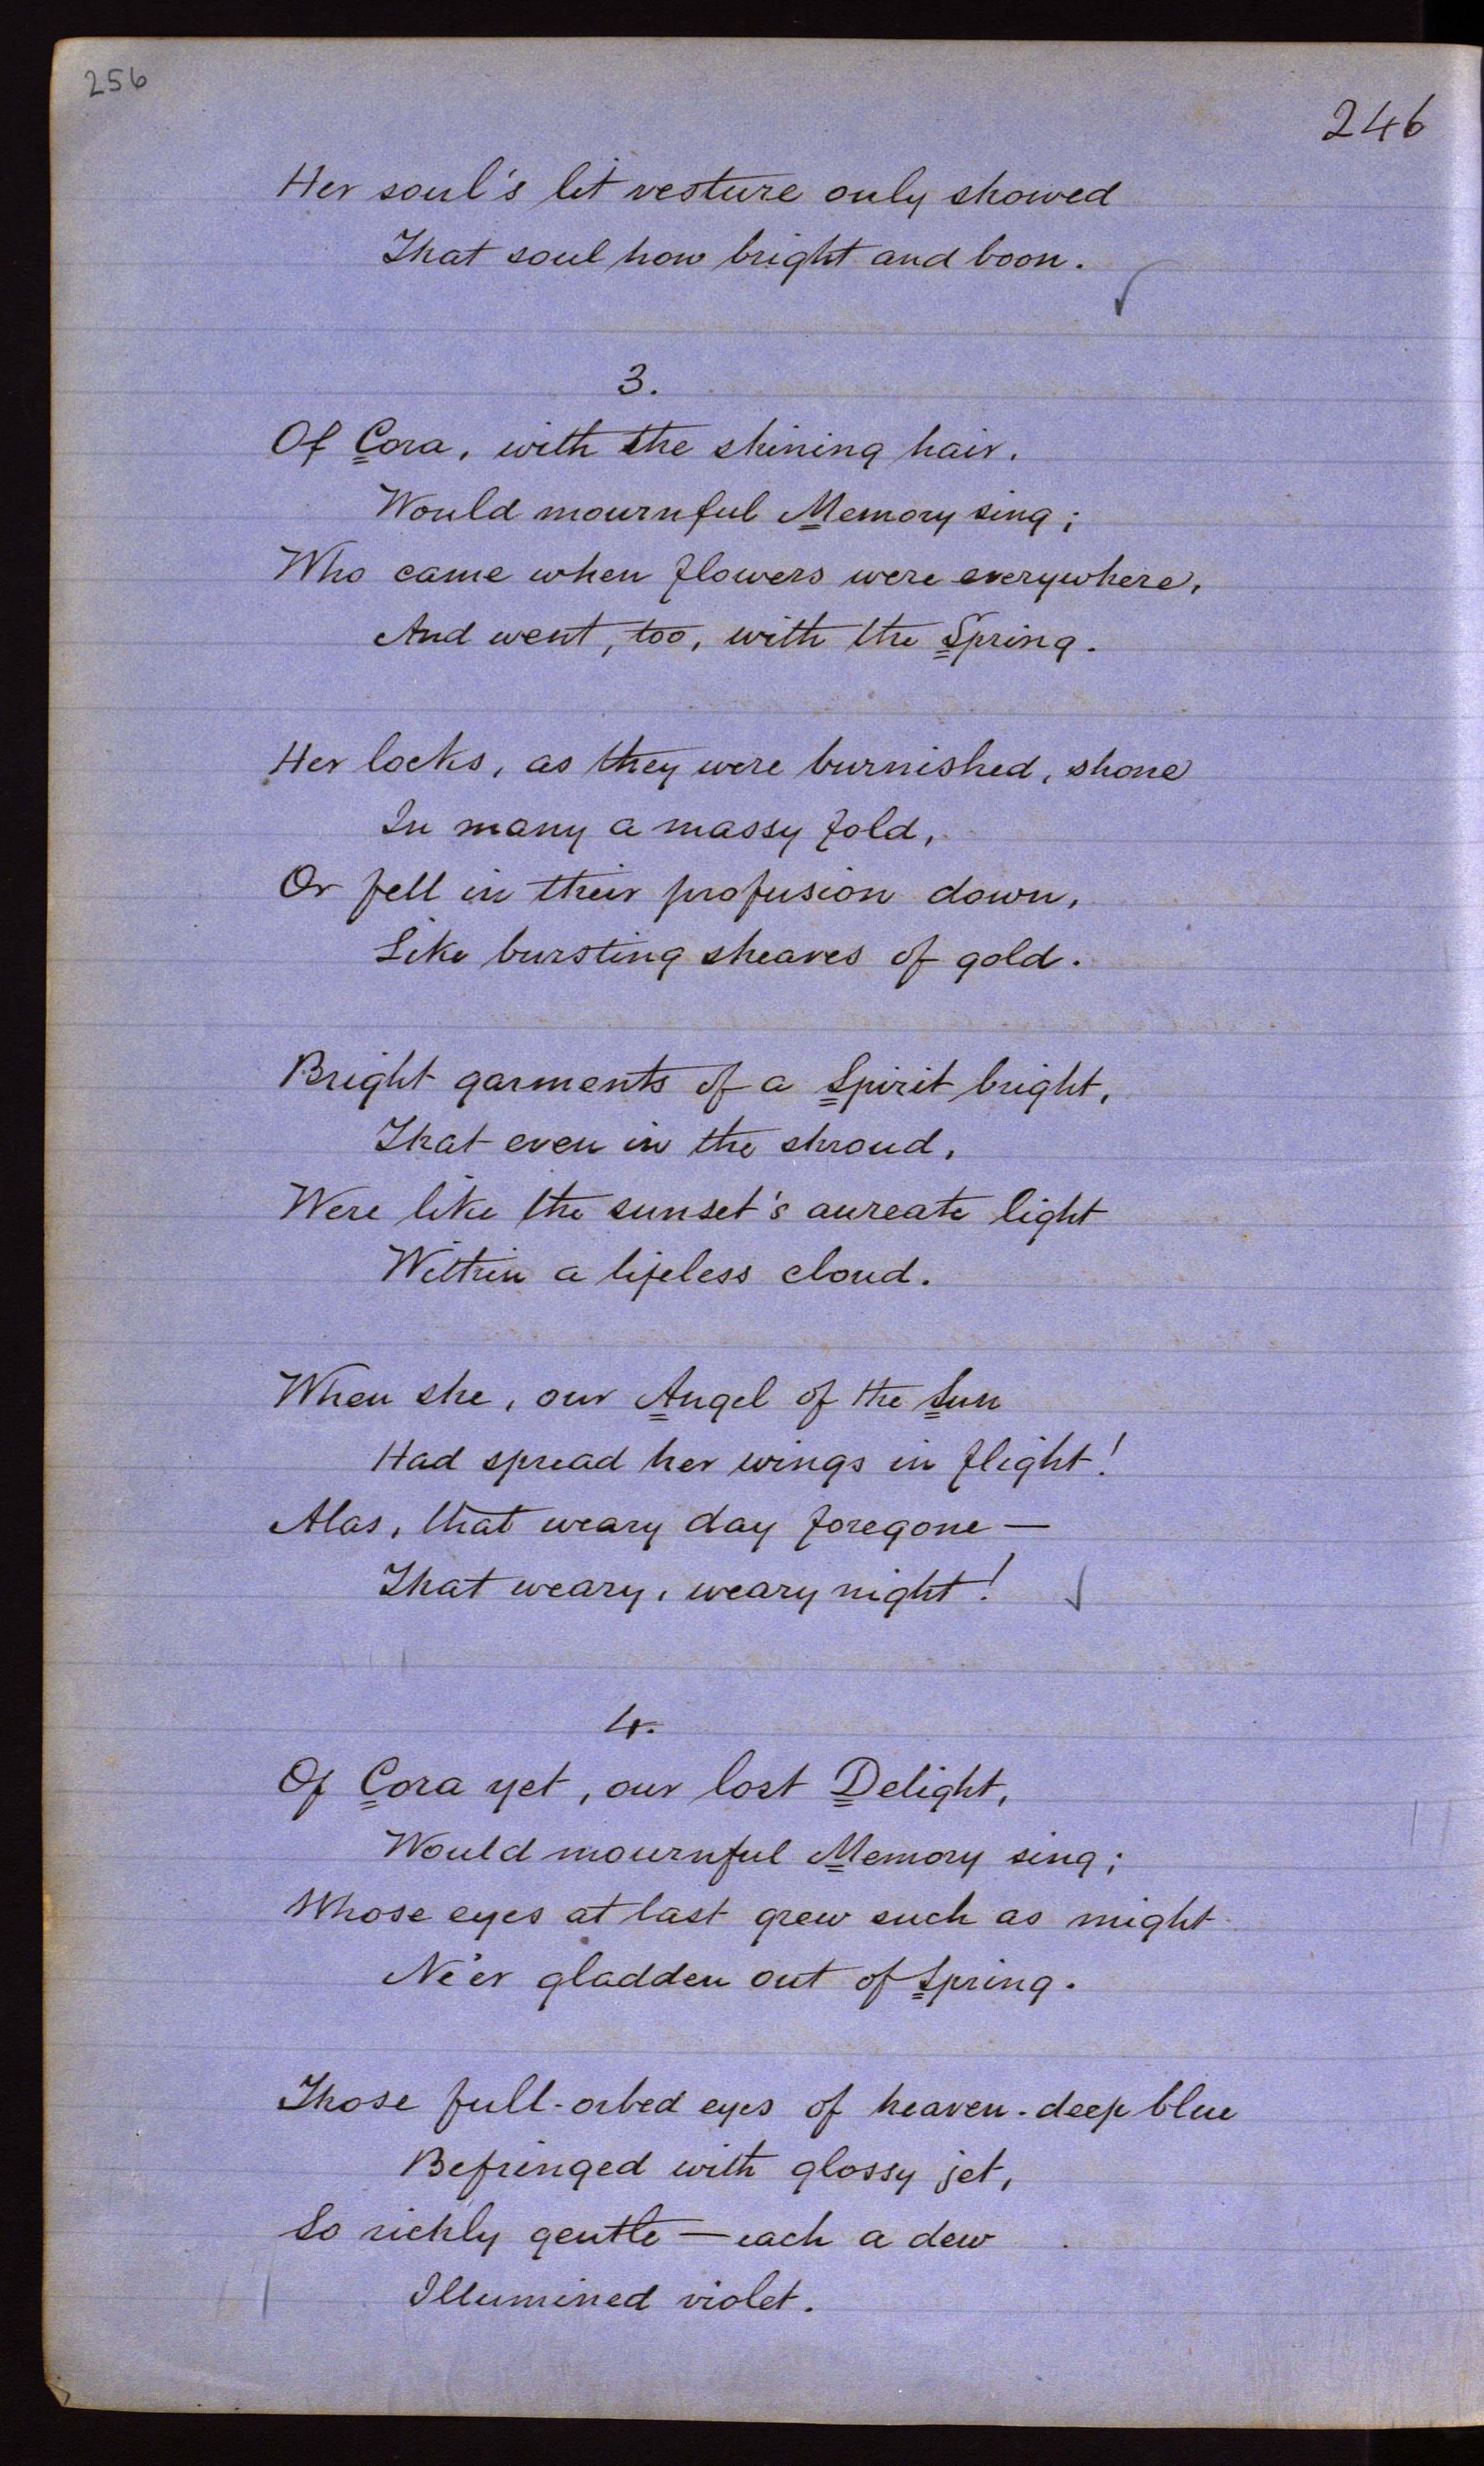 256
246
Her soul's lit vesture only showed
That soul how bright and boon.
3.
Of Cora, with the shining hair,
Would mournful Memory sing;
Who came when flowers were everywhere,
And went, too, with the Spring.
Her locks, as they were burnished, shone
In many a massy fold,
Or fell in their profusion down,
Like bursting sheaves of gold.
Bright garments of a Spirit bright,
That even in the shroud,
Were like the sunset's aureate light
Within a lifeless cloud.
When she, our Angel of the Sun
Had spread her wings in flight!
Alas, that weary day foregone —
That weary, weary night!
4.
Of Cora yet, our lost Delight,
Would mournful Memory sing;
Whose eyes at last grew such as might
Ne'er gladden out of Spring.
Those full-orbed eyes of heaven-deep blue
Befringed with glossy jet,
So richly gentle — each a dew
Illumined violet.